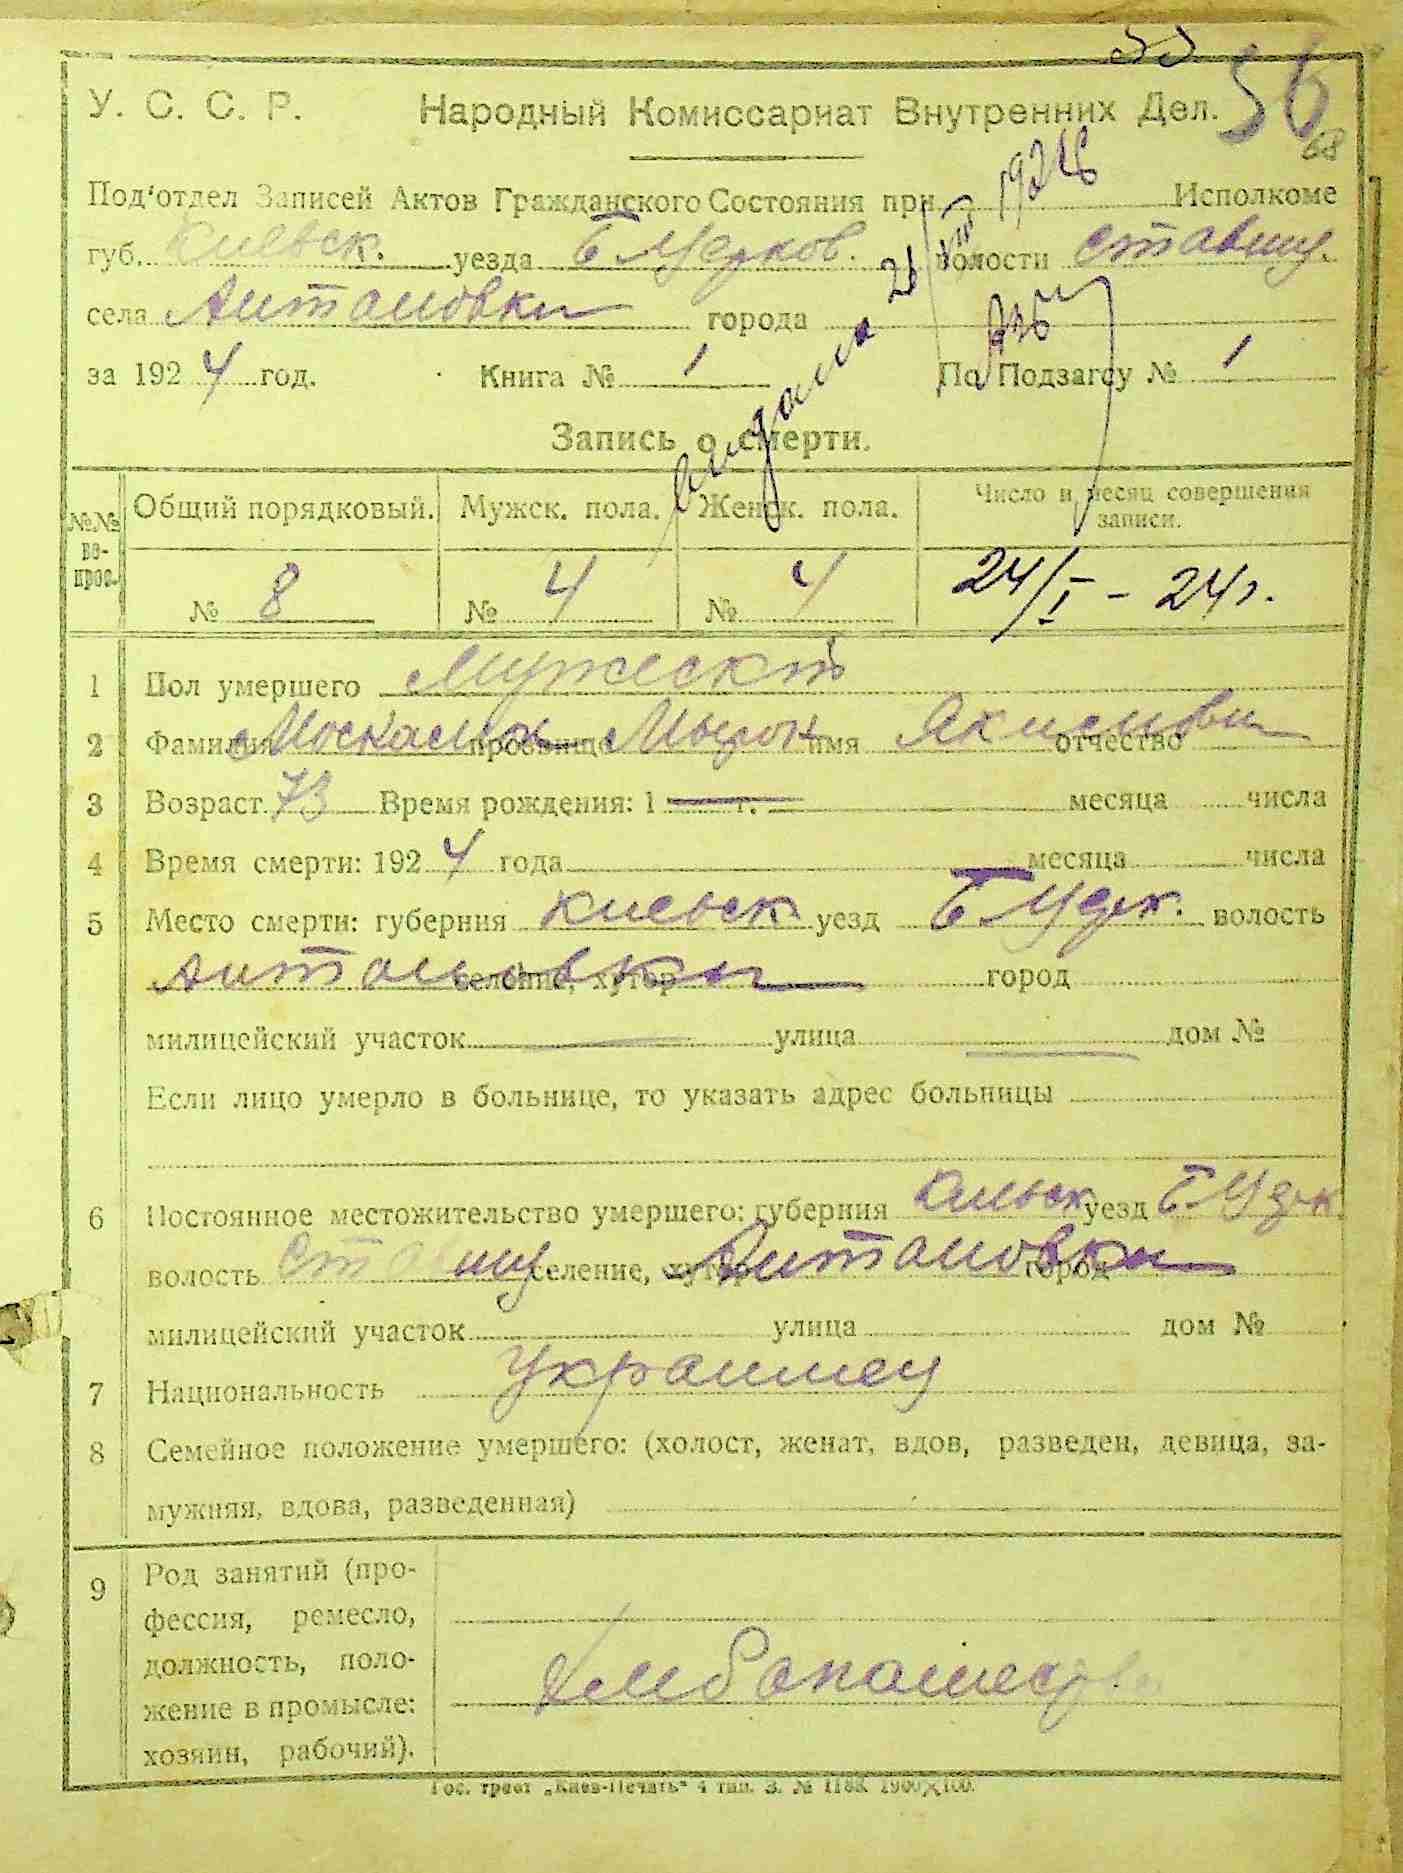 56
68
У. С. С. Р. Народный Комиссариат Внутренних Дел.
Под'отдел Записей Актов Гражданского Состояния при Исполкоме
губ. Киевск. уезда Б Церков. волости Ставищ.
села Антоновки города
за 1924 год. Книга № 1 По Подзагсу № 1
Запись о смерти.
№№ вопрос. Общий порядковый. Мужск. пола. Женск. пола. Число и месяц совершения записи.
№ 8 № 4 № 4 24/I - 24 г.
1 Пол умершего Мужеский
2 Фамилия прозвище Мирон имя отчество
3 Возраст 73 Время рождения: 1 г. месяца числа
4 Время смерти: 1924 года месяца числа
5 Место смерти: губерния Киевск уезд Б Церк. волость
Антоновки селение, хутор город
милицейский участок улица дом №
Если лицо умерло в больнице, то указать адрес больницы
6 Постоянное местожительство умершего: губерния Киевск уезд Б Церк
волость Ставищ селение, хутор Антоновки город
милицейский участок улица дом №
7 Национальность Украинец
8 Семейное положение умершего: (холост, женат, вдов, разведен, девица, за-
мужняя, вдова, разведенная)
9 Род занятий (про-
фессия, ремесло,
должность, поло-
жение в промысле:
хозяин, рабочий).
Гос. трест „Киев-Печать“ 4 тип. З. №